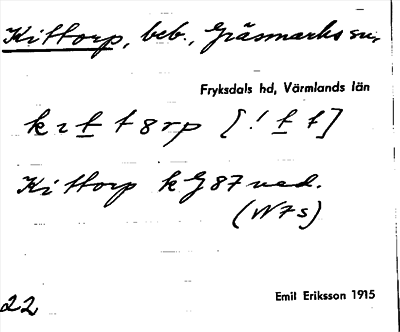 Kittorp, beb., Gräsmarks sn,
Fryksdals hd, Värmlands län
kıttɜrp [! t t]
Kittorp kG87ved.
(N7s)
22
Emil Eriksson 1915